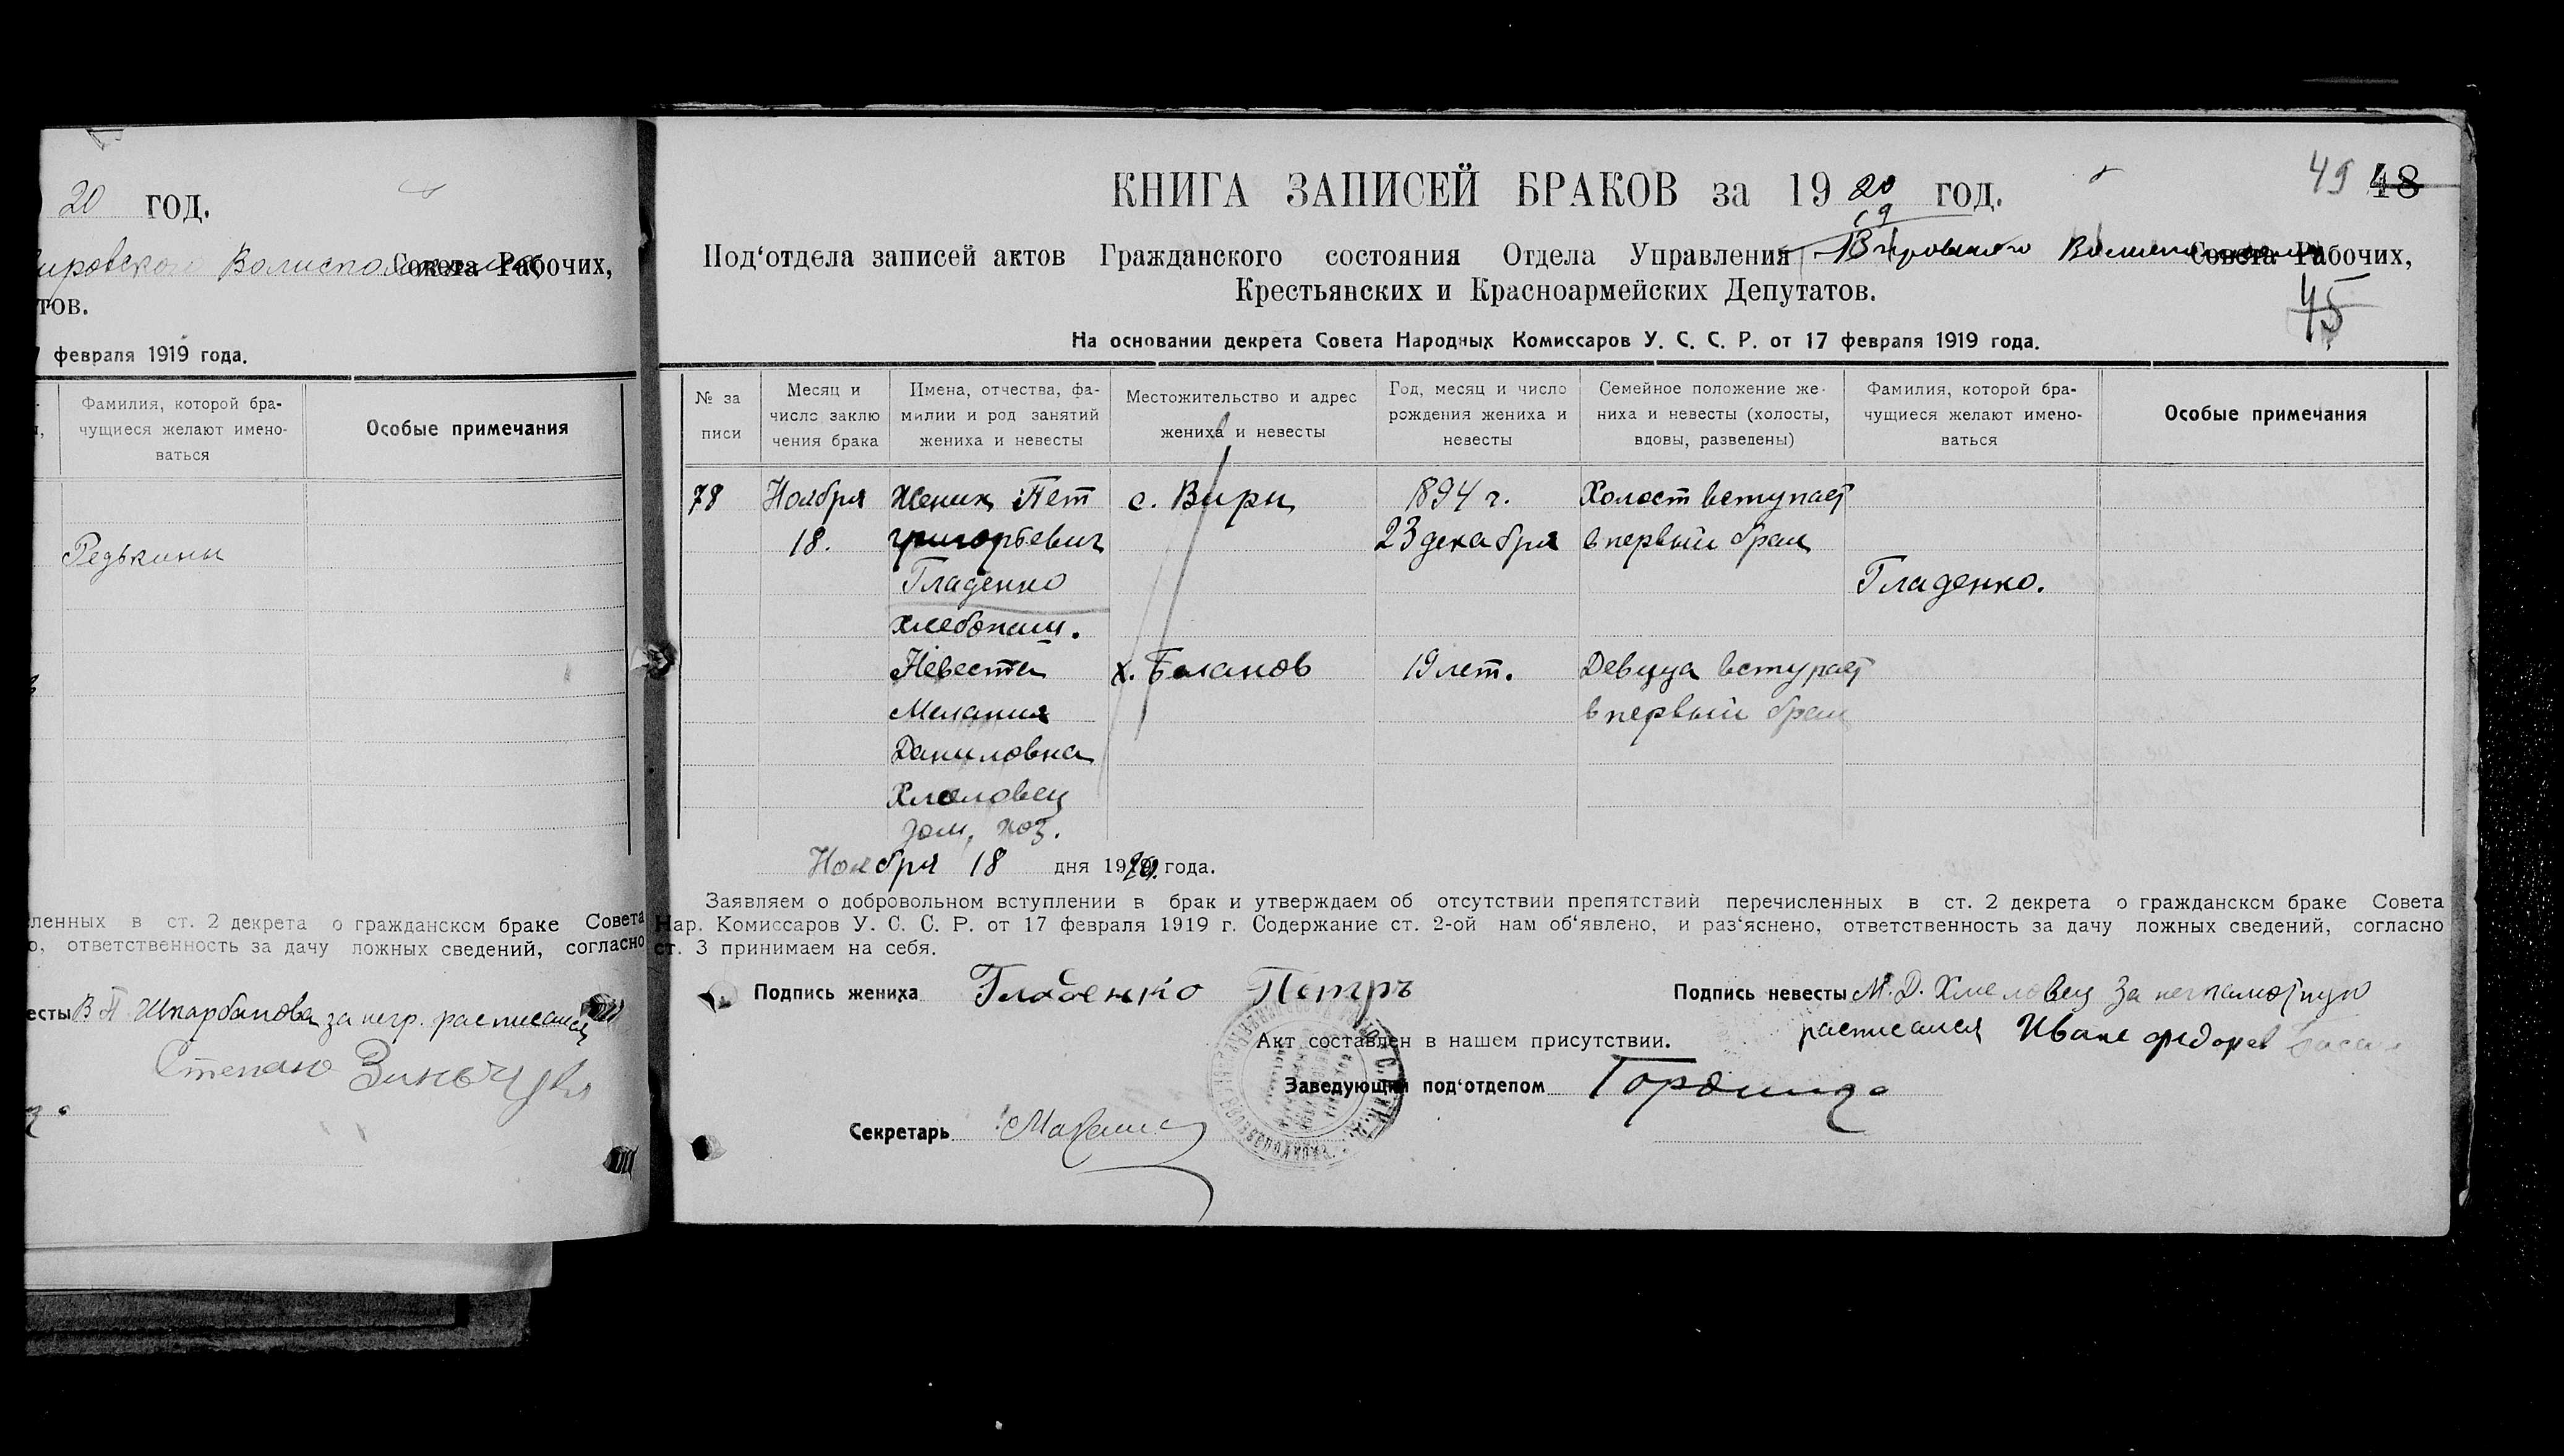 20 год.
Волисполкома Совета Рабочих,
тов.
февраля 1919 года.
Фамилия, которой бра-
чущиеся желают имено-
ваться
Особые примечания
Редькины
ленных в ст. 2 декрета о гражданском браке Совета
о, ответственность за дачу ложных сведений, согласно
есты В П за негр. расписался
Степан
49 48
КНИГА ЗАПИСЕЙ БРАКОВ за 1920 год.
Под‘отдела записей актов Гражданского состояния Отдела Управления Вировского Совета Рабочих,
Крестьянских и Красноармейских Депутатов.
45
На основании декрета Совета Народных Комиссаров У. С. С. Р. от 17 февраля 1919 года.
№ за
писи
Месяц и
число заклю
чения брака
Имена, отчества, фа-
милии и род занятий
жениха и невесты
Местожительство и адрес
жениха и невесты
Год, месяц и число
рождения жениха и
невесты
Семейное положение же-
ниха и невесты (холосты,
вдовы, разведены)
Фамилия, которой бра-
чущиеся желают имено-
ваться
Особые примечания
78 Ноября Жених Пет с. Виры 1894 г. Холост вступает
18. григорьевич 23 декабря в первый брак
Гладенко Гладенко.
хлебопаш.
Невеста х. Баланов 19 лет. Девица вступает
Мелания в первый брак
Даниловна
Хмеловец
дом. хоз.
Ноября 18 дня 1920 года.
Заявляем о добровольном вступлении в брак и утверждаем об отсутствии препятствий перечисленных в ст. 2 декрета о гражданском браке Совета
Нар. Комиссаров У. С. С. Р. от 17 февраля 1919 г. Содержание ст. 2-ой нам об‘явлено, и раз‘яснено, ответственность за дачу ложных сведений, согласно
ст. 3 принимаем на себя.
Подпись жениха Гладенко Петръ
Подпись невесты М. Д. Хмеловец За неграмотную
расписался Иван Федоров
Акт составлен в нашем присутствии.
Заведующий под‘отделом
Секретарь